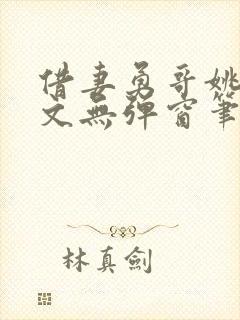 借妻勇哥姚
文無彈窗筆
林真劍